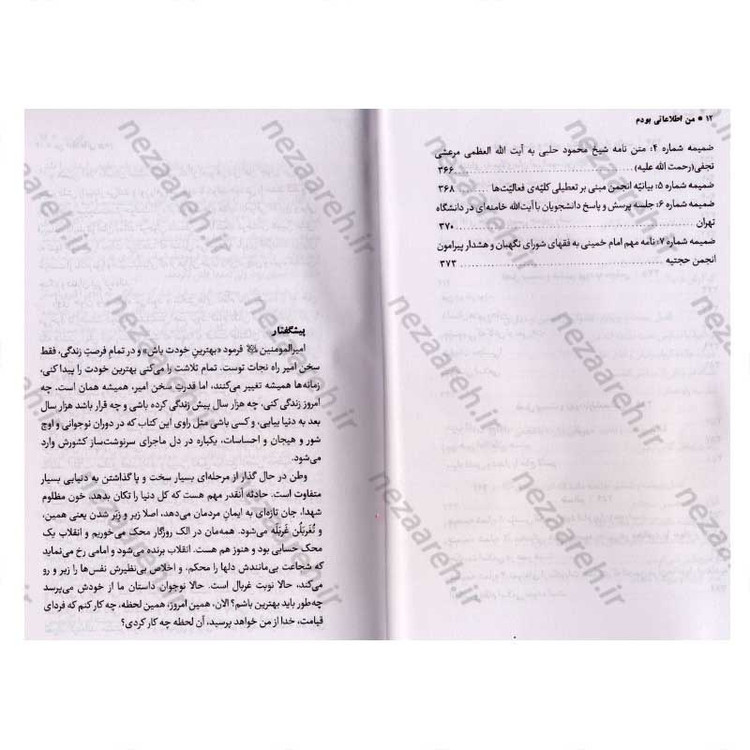 ۱۲ ● من اطلاعاتی بودم
ضمیمه شماره ۴: متن نامه شیخ محمود حلبی به آیت الله العظمی مرعشی
نجفی(رحمت الله علیه) ۳۶۶
ضمیمه شماره ۵: بیانیّه انجمن مبنی بر تعطیلی کلیّه‌ی فعالیّت‌ها ۳۶۸
ضمیمه شماره ۶: جلسه پرسش و پاسخ دانشجویان با آیت‌الله خامنه‌ای در دانشگاه
تهران ۳۷۰
ضمیمه شماره ۷: نامه مهم امام خمینی به فقهای شورای نگهبان و هشدار پیرامون
انجمن حجتیه ۳۷۳
پیشگفتار
امیرالمومنین فرمود «بهترینِ خودت باش» و در تمام فرصتِ زندگی، فقط
سخن امیر راه نجات توست. تمام تلاشت را می‌کنی بهترین خودت را پیدا کنی.
زمانه‌ها همیشه تغییر می‌کنند، اما قدرتِ سخن امیر، همیشه همان است. چه
امروز زندگی کنی، چه هزار سال پیش زندگی کرده باشی و چه قرار باشد هزار سال
بعد به دنیا بیایی، و کسی باشی مثل راوی این کتاب که در دوران نوجوانی و اوج
شور و هیجان و احساسات، یکباره در دل ماجرای سرنوشت‌ساز کشورش وارد
می‌شود.
وطن در حال گذار از مرحله‌ای بسیار سخت و پا گذاشتن به دنیایی بسیار
متفاوت است. حادثه آنقدر مهم هست که کل دنیا را تکان بدهد. خون مظلوم
شهدا، جان تازه‌ای به ایمان مردمان می‌دهد، اصلا زیر و زبَر شدن یعنی همین،
و تُغَربَلُن غَربَلَه می‌شود. همه‌مان در الک روزگار محک می‌خوریم و انقلاب یک
محک حسابی بود و هنوز هم هست. انقلاب برنده می‌شود و امامی رخ می‌نماید
که شجاعت بی‌مانندش دلها را محکم، و اخلاص بی‌نظیرش نفس‌ها را زیر و رو
می‌کند، حالا نوبت غربال است. حالا نوجوان داستان ما از خودش می‌پرسد
چه‌طور باید بهترین باشم؟ الان، همین امروز، همین لحظه، چه کار کنم که فردای
قیامت، خدا از من خواهد پرسید، آن لحظه چه کار کردی؟
nezaareh.ir
nezaareh.ir
nezaareh.ir
nezaareh.ir
nezaareh.ir
nezaareh.ir
nezaareh.ir
nezaareh.ir